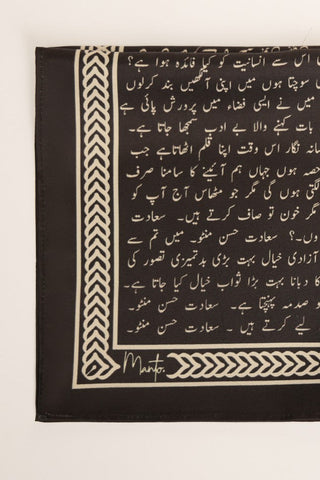 اس سے انسانیت کو کیا فائدہ ہوا ہے؟
سوچتا ہوں میں اپنی آنکھیں بند کرلوں
میں نے ایسی فضاء میں پرورش پائی ہے
بات کہنے والا بے ادب سمجھا جاتا ہے۔
نگار اس وقت اپنا قلم اٹھاتا ہے جب
حصہ ہوں جہاں ہم آئینے کا سامنا صرف
لگتی ہوں گی مگر جو مٹھاس آج آپ کو
مگر خون تو صاف کرتے ہیں۔ سعادت
سعادت حسن منٹو۔ میں تم سے
آزادی خیال بہت بڑی بدتمیزی تصور کی
کا دبانا بہت بڑا ثواب خیال کیا جاتا ہے۔
صدمہ پہنچتا ہے۔ سعادت حسن منٹو۔
لیے کرتے ہیں ۔ سعادت حسن منٹو۔
Manto.